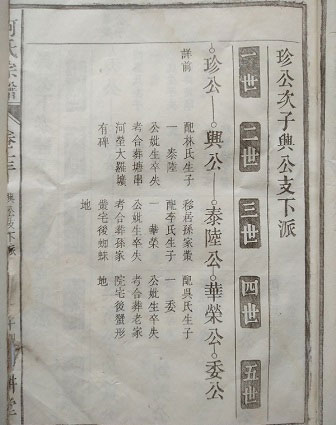 珍公次子興公支下派
一世 二世 三世 四世 五世
珍公 興公 泰陸公 華榮公 委公
詳前
配林氏生子
一 泰陸
公妣生卒失
考合葬塘串
河塋大羅壙
有碑
移居孫家嶴
配李氏生子
一 華榮
公妣生卒失
考合葬孫家
嶴宅後蜘蛛
地
配吳氏生子
一 委
公妣生卒失
考合葬老家
院宅後蟹形
地
氏宗譜
卷十三
興公支下派